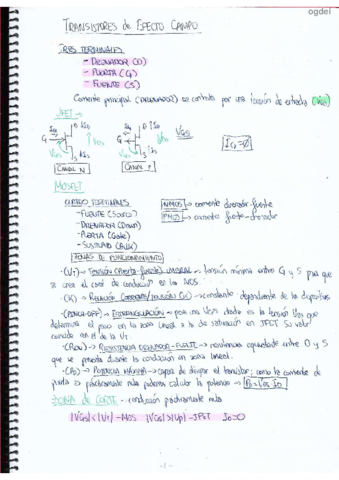 ogdei
TRANSISTORES de EFECTO CAMPO
TRES TERMINALES
- DRENADOR (D)
- PUERTA (G)
- FUENTE (S)
Corriente principal (DRENADOR) se controla por una tensión de entrada (VGS)
JFET →
IG D ↓ID ↑ID
G VGS IG=0
VGS S ↓IS
CANAL N CANAL P
MOSFET
CUATRO TERMINALES NMOS → corriente drenador-fuente
- FUENTE (Source) PMOS → corriente fuente-drenador
- DRENADOR (Drain)
- PUERTA (Gate)
- SUSTRATO (Bulk)
ZONAS DE FUNCIONAMIENTO
- (VT) → TENSIÓN (Puerta-fuente) UMBRAL - tensión mínima entre G y S para que
se cree el canal de conducción en los MOS.
- (K) → RELACIÓN CORRIENTE/TENSIÓN (K) → constante dependiente de los dispositivos
- (PINCH-OFF) → ESTRANGULACIÓN - para una VGS dada es la tensión VDS que
determina el paso en la zona lineal a la de saturación en JFET. Su valor
coincide en el de la VT
- (RON) → RESISTENCIA DRENADOR-FUENTE → resistencia equivalente entre D y S
que se presenta durante la conducción en zona lineal.
- (PD) → POTENCIA MÁXIMA → capaz de disipar el transistor; como la corriente de
puerta es prácticamente nula podemos calcular la potencia → PD = VDS ID
ZONA DE CORTE - conducción prácticamente nula
|VGS|<|VT| - MOS |VGS|>|VP| - JFET ID=0
- 1 -